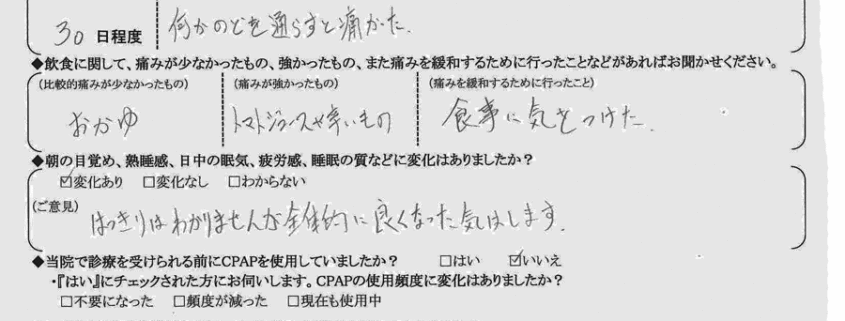 30 日程度 何かのどを通らすと痛かた.
◆飲食に関して、痛みが少なかったもの、強かったもの、また痛みを緩和するために行ったことなどがあればお聞かせください。
(比較的痛みが少なかったもの) (痛みが強かったもの) (痛みを緩和するために行ったこと)
おかゆ トマトジュースや辛いもの 食事に気をつけた.
◆朝の目覚め、熟睡感、日中の眠気、疲労感、睡眠の質などに変化はありましたか?
☑変化あり □変化なし □わからない
(ご意見)
はっきりはわかりませんが全体的に良くなった気はします.
◆当院で診療を受けられる前にCPAPを使用していましたか? □はい ☑いいえ
・『はい』にチェックされた方にお伺いします。CPAPの使用頻度に変化はありましたか?
□不要になった □頻度が減った □現在も使用中